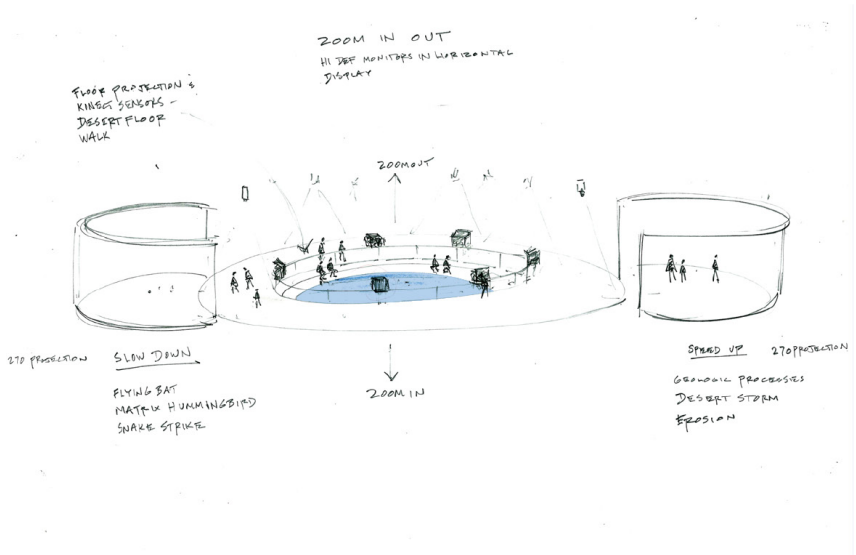 ZOOM IN OUT
HI DEF MONITORS IN HORIZONTAL
DISPLAY
FLOOR PROJECTION &
KINECT SENSORS –
DESERT FLOOR
WALK
ZOOM OUT
270 PROJECTION
SLOW DOWN
FLYING BAT
MATRIX HUMMINGBIRD
SNAKE STRIKE
ZOOM IN
SPEED UP
270 PROJECTION
GEOLOGIC PROCESSES
DESERT STORM
EROSION